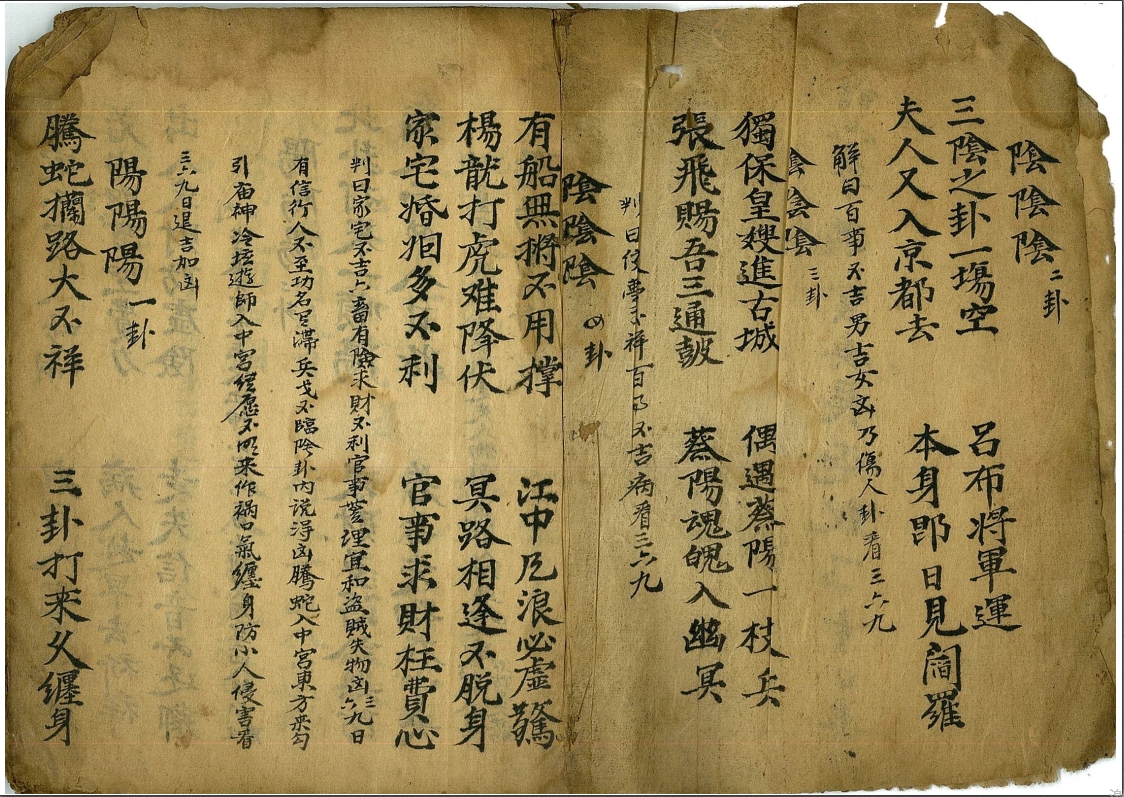 陰陰陰 二卦
三陰之卦一塲空 呂布将軍運
夫人又入京都去 本身即日見閻羅
解曰百事不吉男吉女凶乃傷人卦看三六九
陰陰陰 三卦
獨保皇嫂進古城 偶遇蔡陽一枝兵
張飛賜吾三通鼓 蔡陽魂魄入幽冥
判曰夢不祥百不吉病看三六九
陰陰陰 四卦
有船無撐不用撑 江中浪必虛驚
楊龍打虎难降伏 冥路相逢不脱身
家宅婚姻多不利 官事求財枉費心
判曰家宅不吉六畜有險求財不利官事宜和盜賊失物凶三六九日
有信行人不至功名滯兵戈不臨陰卦内说淂凶騰蛇入中宮東方来勾
引廟神冷壇遊師入中宮愿不明来作祸口氣纏身防小人侵害看
三六九日退吉加凶
陽陽陽 一卦
騰蛇攔路大不祥 三卦打来久纏身